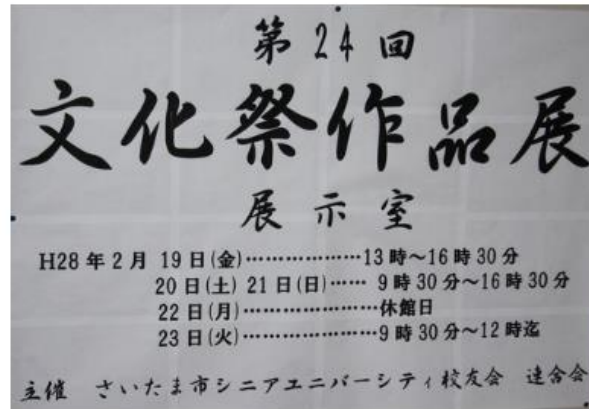 第24回
文化祭作品展
展示室
H28年2月 19日(金)………………13時〜16時30分
20日(土) 21日(日)…… 9時30分〜16時30分
22日(月)…………………休館日
23日(火)…………………9時30分〜12時迄
主催 さいたま市シニアユニバーシティ校友会 連合会